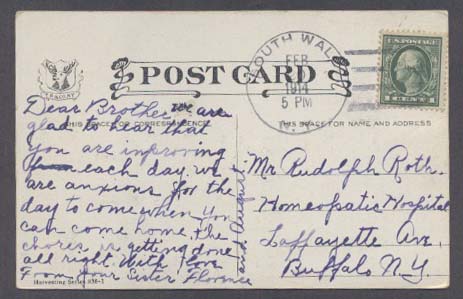 SOUTH WAL
FEB
1914
5 PM
N.Y.
U.S. POSTAGE
1 CENT 1
POST CARD
THIS SPACE FOR CORRESPONDENCE
THIS SPACE FOR NAME AND ADDRESS
Dear Brother we are
glad to hear that
you are improving
each day. we
are anxious for the
day to come when you
can come home. The
chores is getting done
all right. With love
From your Sister Florence
and August
Mr Rudolph Roth.
Homeopatic Hospital
Laffayette Ave.
Buffalo N.Y.
Harvesting Series 938-1